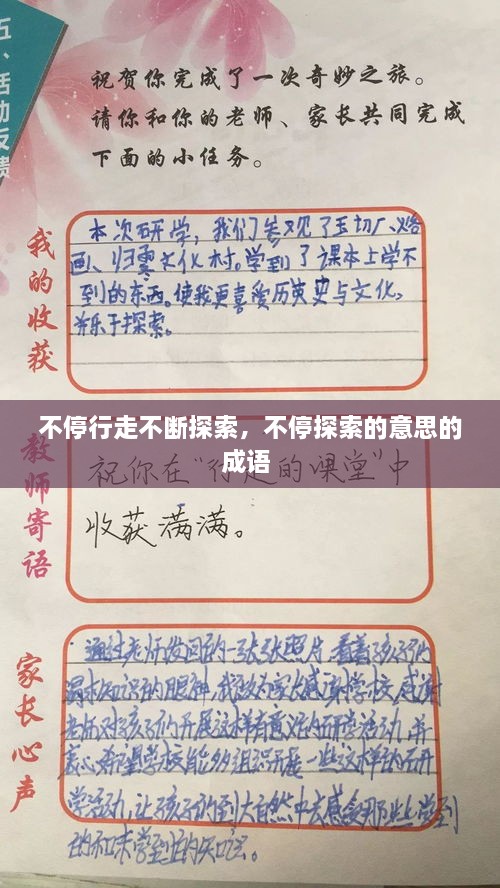 五、活动反馈
祝贺你完成了一次奇妙之旅。
请你和你的老师、家长共同完成
下面的小任务。
我的收获
本次研学，我们参观了玉切厂、烙
画、归零文化村。学到了课本上学不
到的东西。使我更喜爱历史与文化，
并乐于探索。
不停行走不断探索，不停探索的意思的
成语
教师寄语
祝你在“行走的课堂”中
收获满满。
家长心声
通过老师发回的一张张照片，看着孩子们
渴求知识的眼神，我作为家长感谢学校，感谢
老师对孩子们开展这样有意义的研学活动，并
衷心希望学校能多组织开展一些这样的研
学活动，让孩子们到大自然中去感受那些学到
的和未学到的知识。